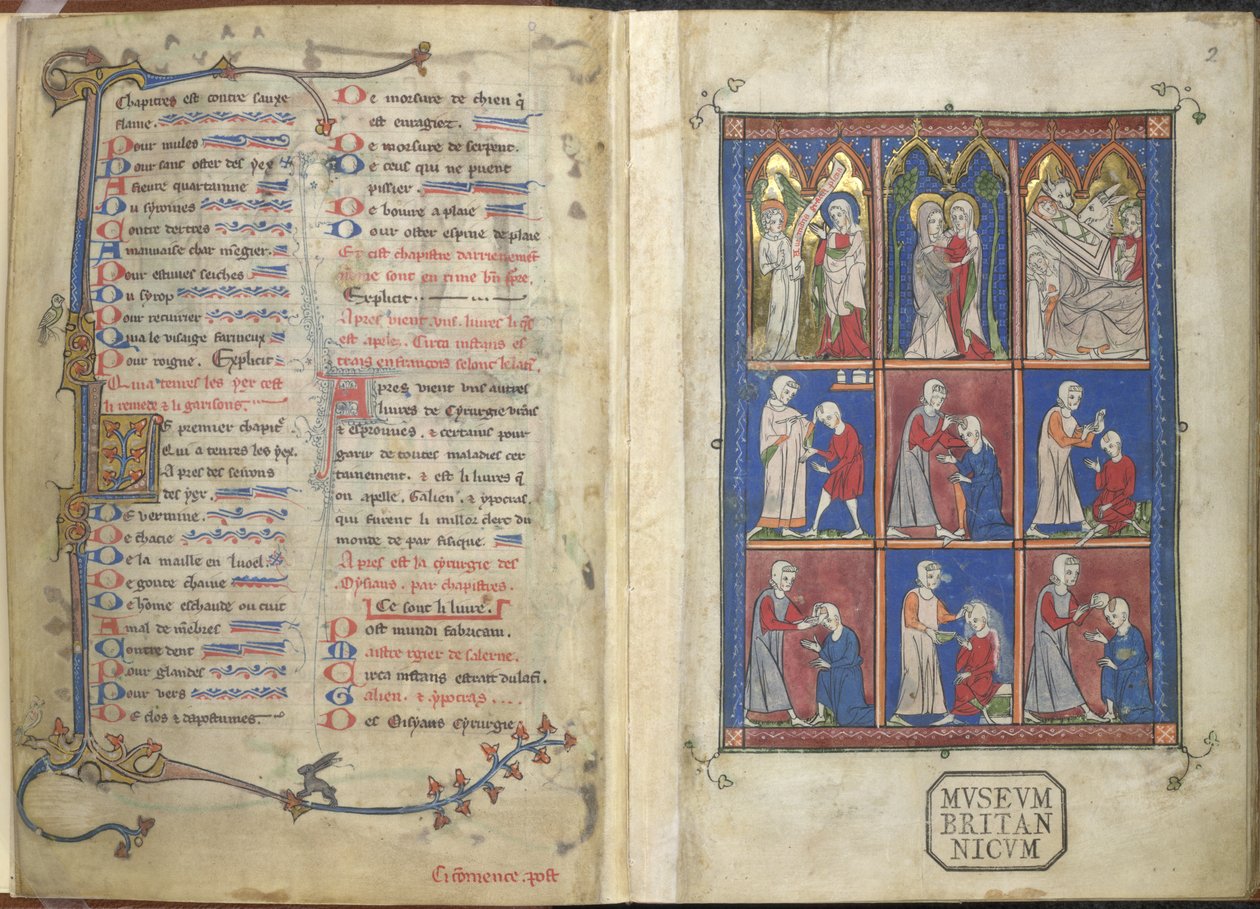 Chapitres est contre sauxe
flame.
Pour mules
Pour sans oster des yex
A fieure quartainne
Du syromes
Contre dertres
A mauuaise char mēgier.
Pour estuues seiches
Du syrop
Pour recuirier
Qua le uisaige farineux
Pour roigne. Explicit
Qui a tenres les yex cest
li remede & li garisons.
Le premier chapitre
Qui a tenres les yex.
Apres des seirons
des yex.
De uermine.
De chacie
De la maille en luoel.
De goute chaiue
De hōme eschaude ou cuit
A mal de mēbres
Contre dent
Pour glandes
Pour uers
De clos & dapostumes.
De morsure de chien q̄
est enragiez.
De morsure de serpent.
De ceus qui ne puent
pissier.
De boiure a plaie
Pour oster espine de plaie
Et cist chapistre darrienement
sont en rime
Explicit
Apres uient uns liures li q̄s
est apelez. Circa instans es
trais en francois selonc le lati
Apres uient uns autres
liures de Cyrurgie
& esprouues. & certains pour
garir de toutes maladies cer
tainement. & est li liures q̄
on apelle. Galien. & ypocras.
qui furent li millor clerc du
monde de par fisique.
Apres est la cyrurgie des
Oysiaus. par chapistres.
Ce sont li liure.
Post mundi fabricam.
Maistre rgier de salerne.
Circa instans estrait du latī.
Galien. & ypocras
Des Oisyaus Cyrurgie
Ci cōmence. post
2
MVSEVM
BRITAN
NICVM